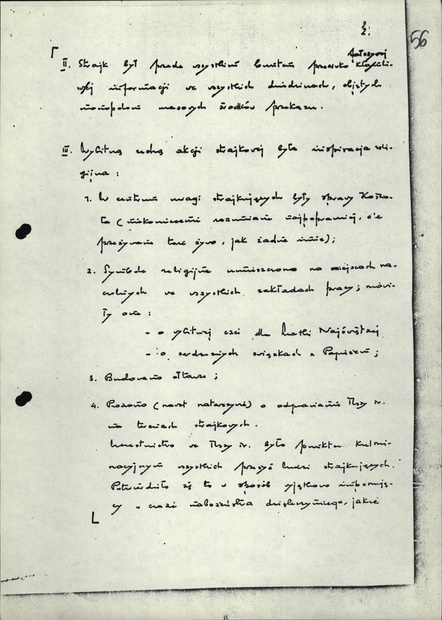 2.
56
II. Strajk był przede wszystkim buntem przeciwko fałszywej
informacji we wszystkich dziedzinach, objętych
monopolem masowych środków przekazu.
III. Wybitną cechą akcji strajkowej była inspiracja religijna:
1. W centrum uwagi strajkujących były sprawy Kościoła
przeżywane tak żywo, jak żadne inne);
2. Symbole religijne umieszczono na miejscach naczelnych
we wszystkich zakładach pracy; mówiły
one:
- o wybitnej czci dla Matki Najświętszej
- o serdecznych związkach z Papieżem;
3. Budowano ołtarze;
4. Proszono (nawet natarczywie) o odprawianie Mszy św.
na terenach strajkowych.
Uczestnictwo we Mszy św. było punktem kulminacyjnym
wszystkich przeżyć ludzi strajkujących.
Potwierdziło się to w sposób wyjątkowo imponujący
w czasie nabożeństwa dziękczynnego, jakie